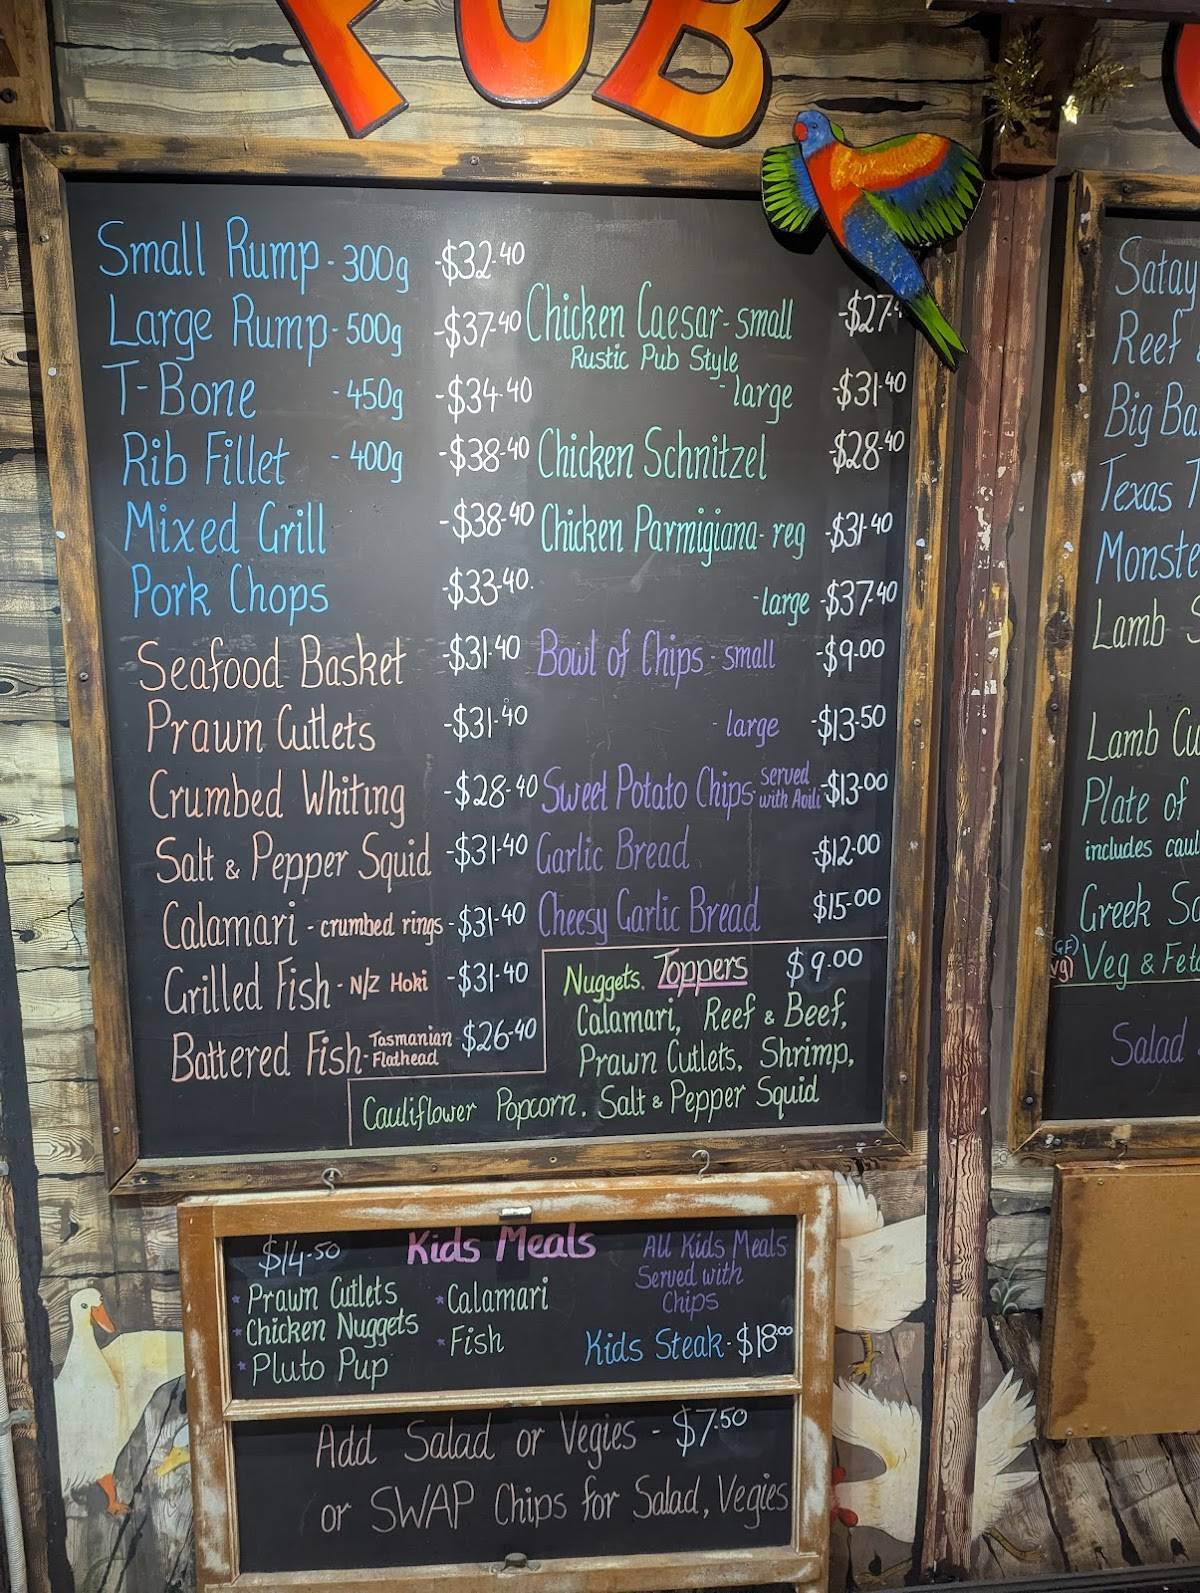 PUB
Small Rump - 300g -$32.40
Large Rump - 500g -$37.40
T-Bone - 450g -$34.40
Rib Fillet - 400g -$38.40
Mixed Grill -$38.40
Pork Chops -$33.40.
Seafood Basket -$31.40
Prawn Cutlets -$31.40
Crumbed Whiting -$28.40
Salt & Pepper Squid -$31.40
Calamari - crumbed rings -$31.40
Grilled Fish - N/Z Hoki -$31.40
Battered Fish - Tasmanian Flathead $26.40
Chicken Caesar - small -$27.
Rustic Pub Style
- large -$31.40
Chicken Schnitzel -$28.40
Chicken Parmigiana - reg -$31.40
- large -$37.40
Bowl of Chips - small -$9.00
- large -$13.50
Sweet Potato Chips served with Aoili -$13.00
Garlic Bread -$12.00
Cheesy Garlic Bread $15.00
Nuggets. Toppers $9.00
Calamari, Reef & Beef,
Prawn Cutlets, Shrimp,
Cauliflower Popcorn. Salt & Pepper Squid
Satay
Reef
Big
Texas
Monste
Lamb
Lamb Cu
Plate of
includes
Greek
(GF)
Vg) Veg & Feta
Salad
$14.50 Kids Meals
* Prawn Cutlets
* Chicken Nuggets
* Pluto Pup
* Calamari
* Fish
All Kids Meals
Served with
Chips
Kids Steak - $18.00
Add Salad or Vegies - $7.50
or SWAP Chips for Salad, Vegies